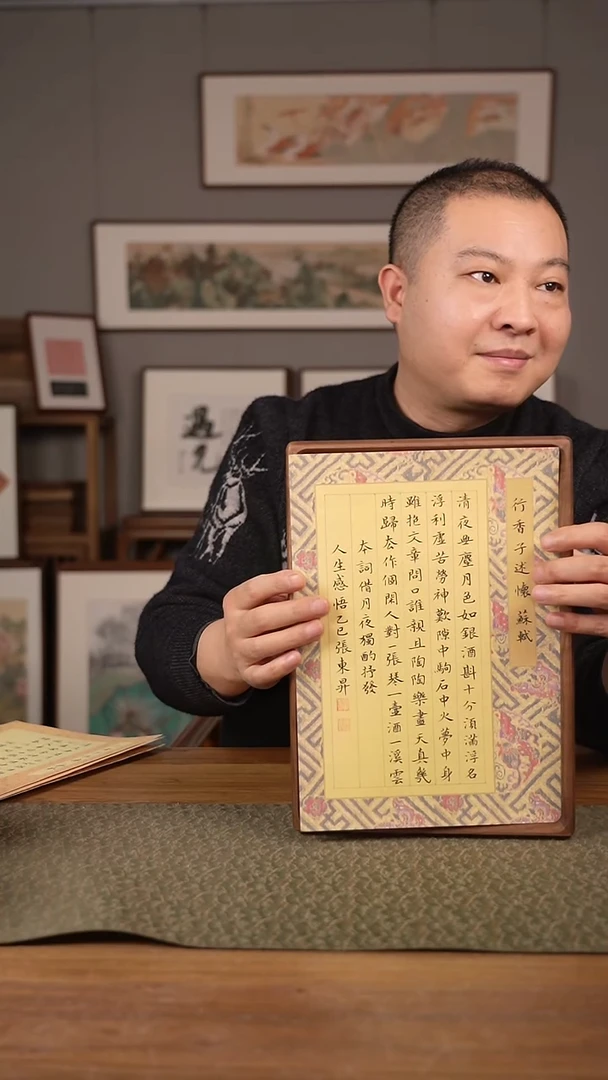 行香子述懷 蘇軾
清夜無塵月色如銀酒斟十分湏滿浮名
浮利虛苦勞神歎隙中駒石中火夢中身
雖抱文章開口誰親且陶陶樂盡天真幾
時歸去作個閑人對一張琴一壺酒一溪雲
本詞借月夜獨酌抒發
人生感悟乙巳張東昇
遇见